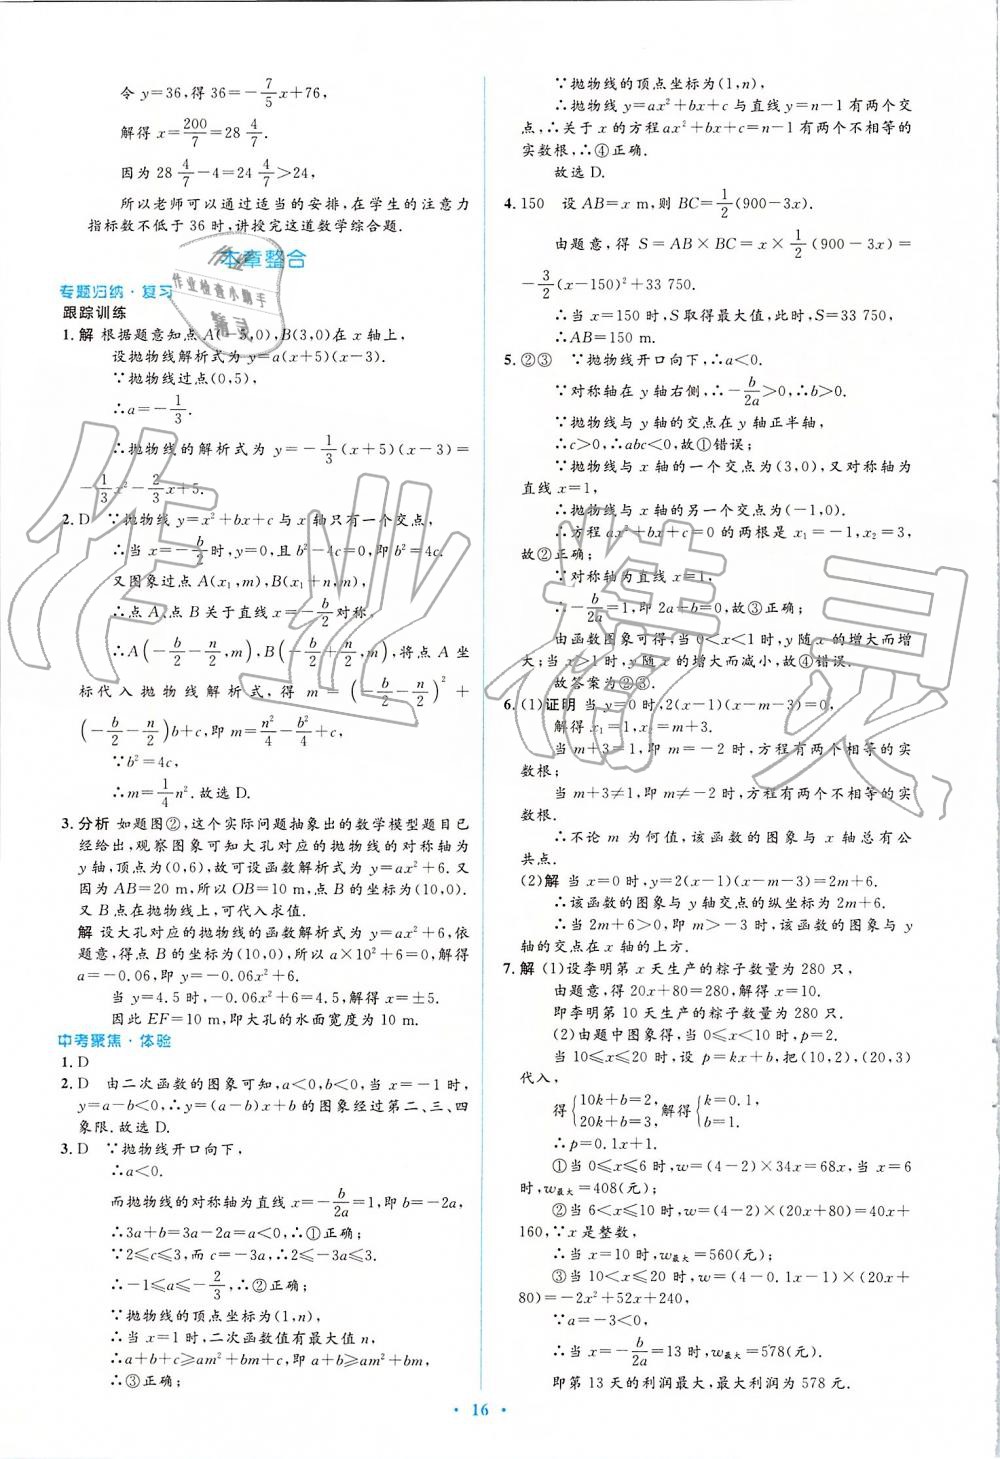 令 y=36,得 36=-7/5x+76,
解得 x=200/7=28 4/7.
因为 28 4/7-4=24 4/7>24,
所以老师可以通过适当的安排,在学生的注意力
指标数不低于 36 时,讲授完这道数学综合题.
本章整合
专题归纳·复习
跟踪训练
1. 解 根据题意知点 A(-5,0),B(3,0)在 x 轴上,
设抛物线解析式为 y=a(x+5)(x-3).
∵抛物线过点(0,5),
∴a=-1/3.
∴抛物线的解析式为 y=-1/3(x+5)(x-3)=
-1/3x²-2/3x+5.
2. D ∵抛物线 y=x²+bx+c与 x 轴只有一个交点,
∴当 x=-b/2时,y=0,且 b²-4c=0,即 b²=4c.
又图象过点 A(x₁,m),B(x₁+n,m),
∴点 A、点 B 关于直线 x=-b/2对称,
∴A(-b/2-n/2,m),B(-b/2+n/2,m),将点 A 坐
标代入抛物线解析式,得 m=(-b/2-n/2)²+
(-b/2-n/2)b+c,即 m=n²/4-b²/4+c,
∵b²=4c,
∴m=1/4n².故选 D.
3. 分析 如题图②,这个实际问题抽象出的数学模型题目已
经给出,观察图象可知大孔对应的抛物线的对称轴为
y 轴,顶点为(0,6),故可设函数解析式为 y=ax²+6.又
因为 AB=20 m,所以 OB=10 m,点 B 的坐标为(10,0).
又 B 点在抛物线上,可代入求值.
解 设大孔对应的抛物线的函数解析式为 y=ax²+6,依
题意,得点 B 的坐标为(10,0),所以 a×10²+6=0,解得
a=-0.06,即 y=-0.06x²+6.
当 y=4.5 时,-0.06x²+6=4.5,解得 x=±5.
因此 EF=10 m,即大孔的水面宽度为 10 m.
中考聚焦·体验
1. D
2. D 由二次函数的图象可知,a<0,b<0,当 x=-1 时,
y=a-b<0,∴y=(a-b)x+b 的图象经过第二、三、四
象限.故选 D.
3. D ∵抛物线开口向下,
∴a<0.
而抛物线的对称轴为直线 x=-b/2a=1,即 b=-2a,
∴3a+b=3a-2a=a<0,∴①正确;
∵2≤c≤3,而 c=-3a,∴2≤-3a≤3,
∴-1≤a≤-2/3,∴②正确;
∵抛物线的顶点坐标为(1,n),
∴当 x=1 时,二次函数值有最大值 n,
∴a+b+c≥am²+bm+c,即 a+b≥am²+bm,
∴③正确;
∵抛物线的顶点坐标为(1,n),
∴抛物线 y=ax²+bx+c 与直线 y=n-1 有两个交
点,∴关于 x 的方程ax²+bx+c=n-1 有两个不相等的
实数根,∴④正确.
故选 D.
4. 150 设 AB=x m,则 BC=1/2(900-3x).
由题意,得 S=AB×BC=x×1/2(900-3x)=
-3/2(x-150)²+33 750.
∴当 x=150 时,S取得最大值,此时,S=33 750,
∴AB=150 m.
5. ②③ ∵抛物线开口向下,∴a<0.
∵对称轴在 y 轴右侧,∴-b/2a>0,∴b>0.
∵抛物线与 y 轴的交点在 y 轴正半轴,
∴c>0,∴abc<0,故①错误;
∵抛物线与 x 轴的一个交点为(3,0),又对称轴为
直线 x=1,
∴抛物线与 x 轴的另一个交点为(-1,0).
∴方程 ax²+bx+c=0 的两根是 x₁=-1,x₂=3,
故②正确;
∵对称轴为直线 x=1,
∴-b/2a=1,即 2a+b=0,故③正确;
由函数图象可得,当 0<x<1 时,y随 x 的增大而增
大;当 x>1 时,y 随 x 的增大而减小,故④错误.
故答案为②③.
6. (1)证明 当 y=0 时,2(x-1)(x-m-3)=0,
解得 x₁=1,x₂=m+3.
当 m+3=1,即 m=-2 时,方程有两个相等的实
数根;
当 m+3≠1,即 m≠-2 时,方程有两个不相等的实
数根.
∴不论 m 为何值,该函数的图象与 x 轴总有公
共点.
(2)解 当 x=0 时,y=2(x-1)(x-m-3)=2m+6.
∴该函数的图象与 y轴交点的纵坐标为 2m+6.
∴当 2m+6>0,即 m>-3 时,该函数的图象与 y
轴的交点在 x 轴的上方.
7. 解 (1)设李明第 x 天生产的粽子数量为 280 只,
由题意得 20x+80=280,解得 x=10.
即李明第 10 天生产的粽子数量为 280 只.
(2)由题中图象得,当 0≤x≤10 时,p=2.
当 10≤x≤20 时,设 p=kx+b,把(10,2),(20,3)
代入,
得{10k+b=2, 20k+b=3, 解得{k=0.1, b=1.
∴p=0.1x+1.
①当 0≤x≤6 时,w=(4-2)×34x=68x,当 x=6
时,w最大=408(元);
②当 6<x≤10 时,w=(4-2)×(20x+80)=40x+
160,∵x 是整数,
∴当 x=10 时,w最大=560(元);
③当 10<x≤20 时,w=(4-0.1x-1)×(20x+
80)=-2x²+52x+240,
∵a=-3<0,
∴当 x=-b/2a=13 时,w最大=578(元).
即第 13 天的利润最大,最大利润为 578 元.
· 16 ·
作业
作业检查小助手
精灵
作业精灵